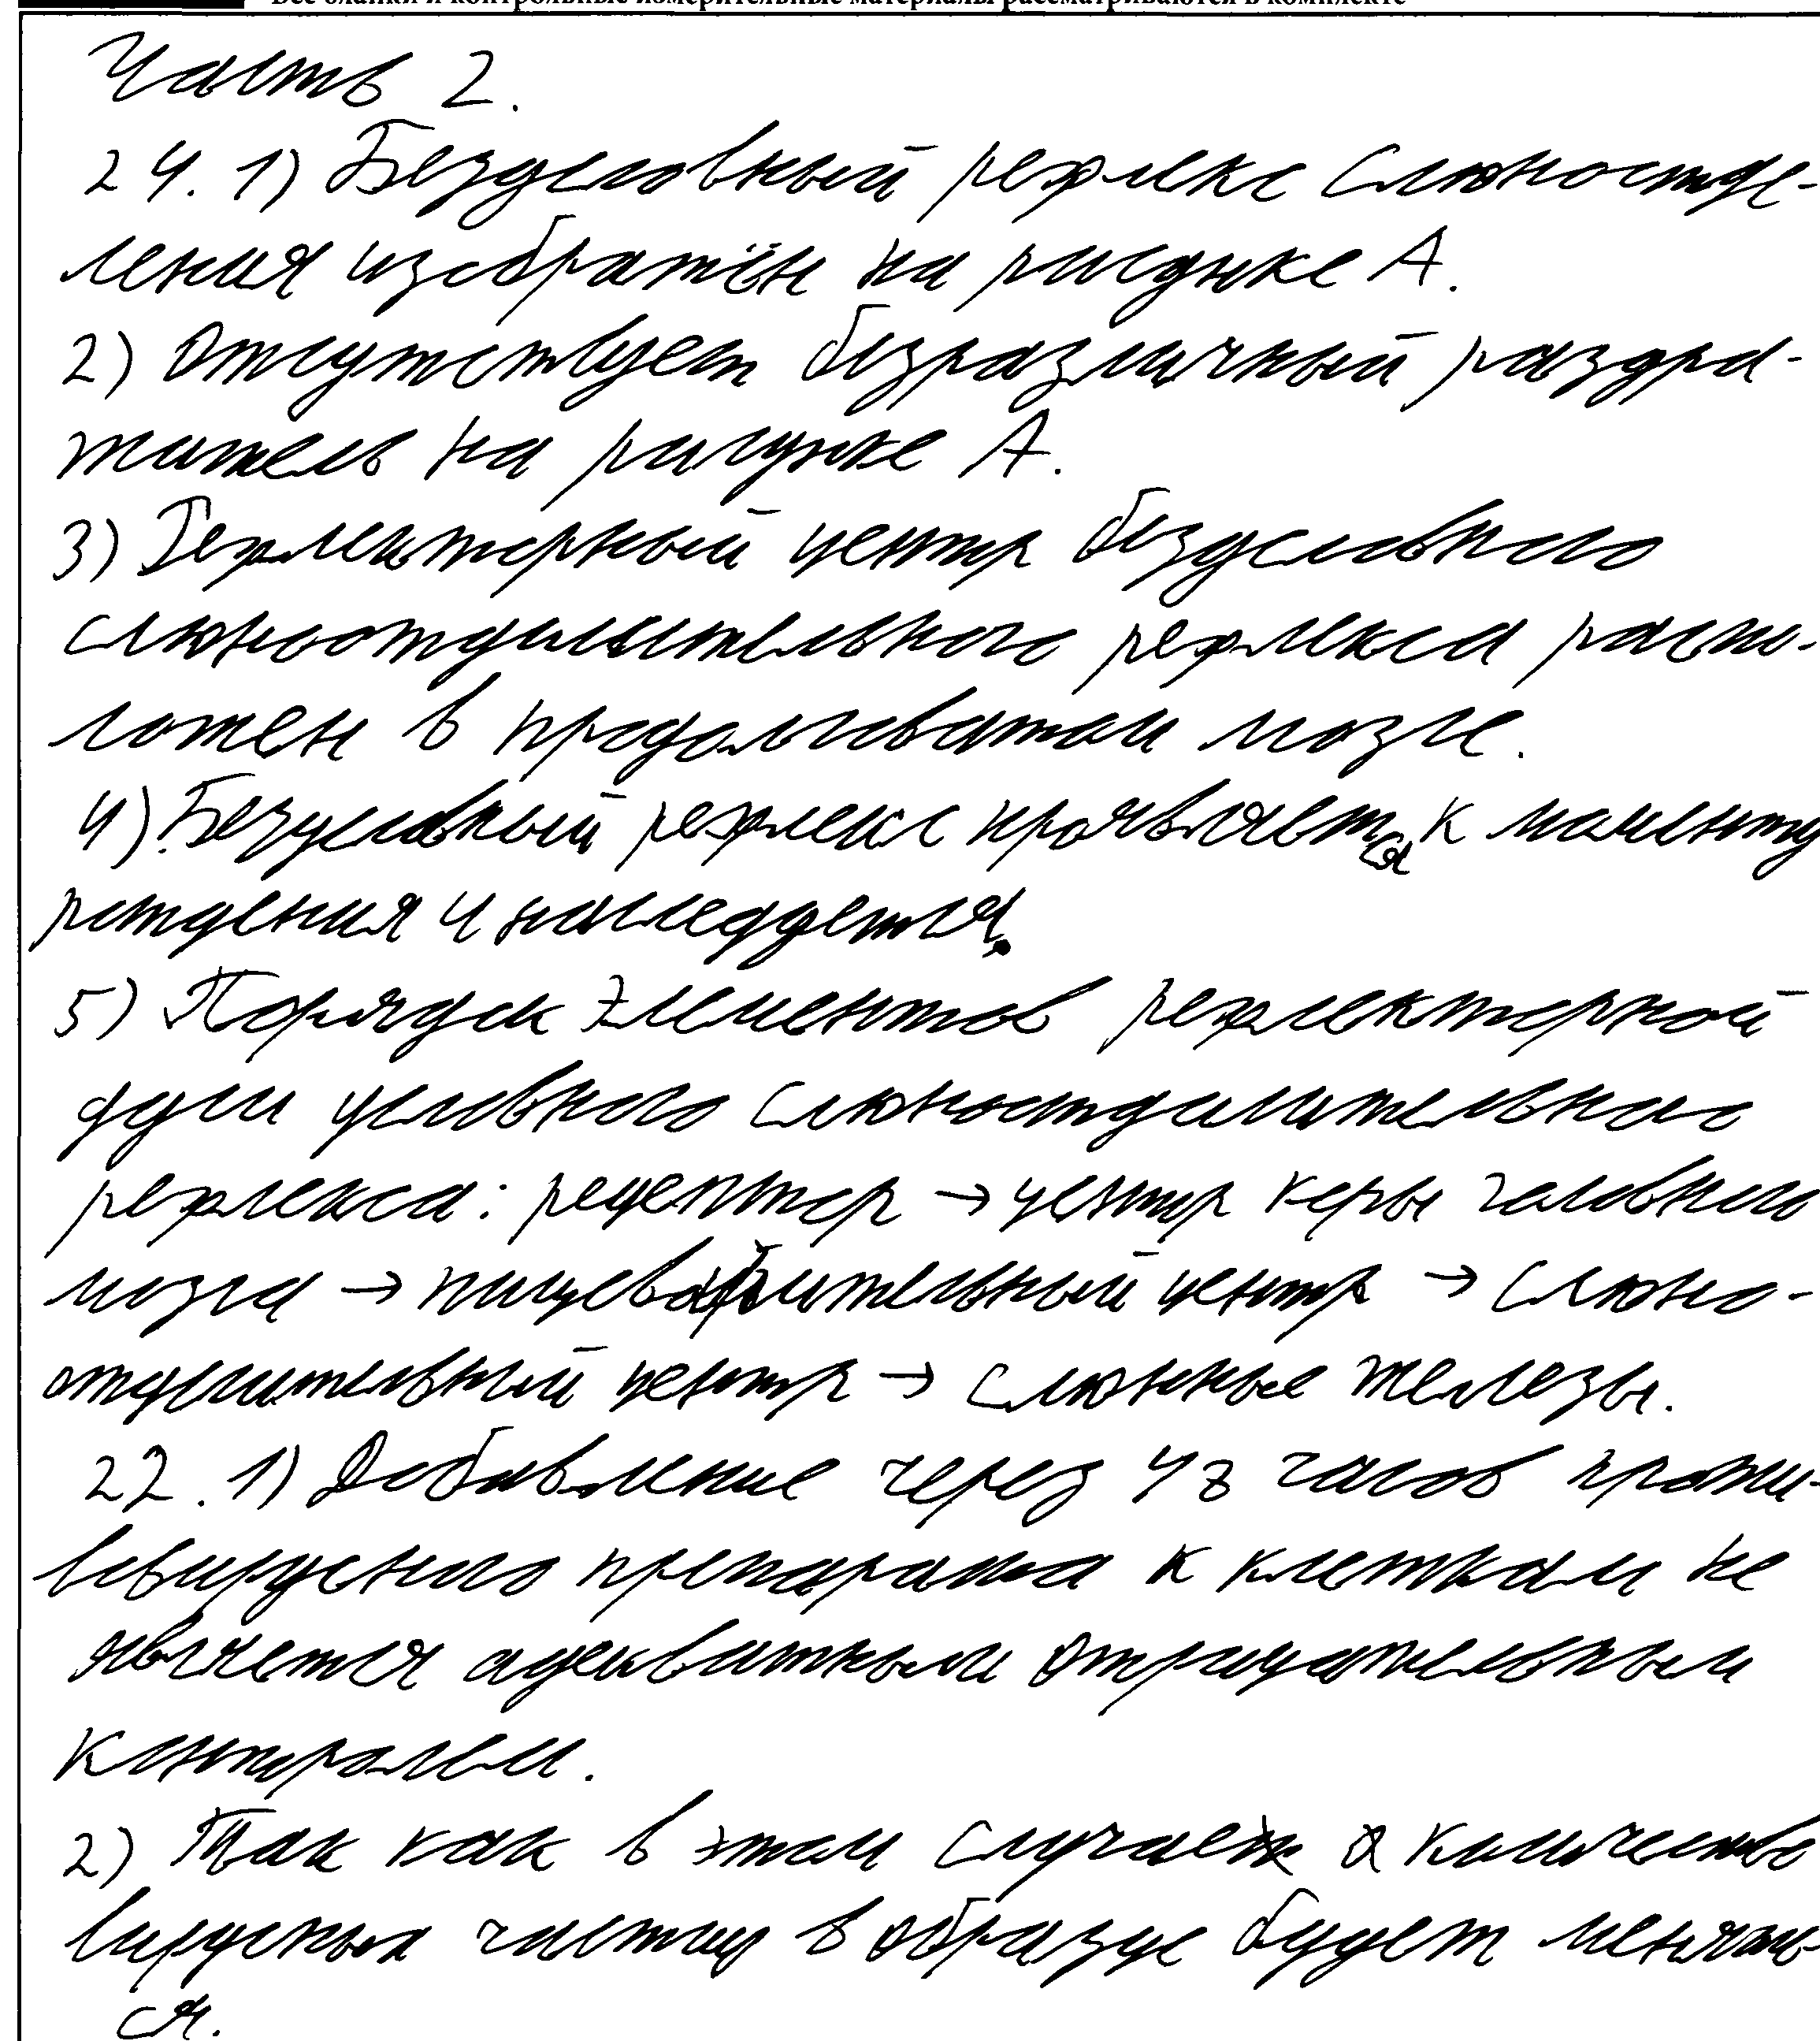 Все бланки и контрольные измерительные материалы рассматриваются в комплекте
Часть 2.
24. 1) Безусловный рефлекс слюноотде-
ления изображён на рисунке А.
2) Отсутствует безразличный раздра-
житель на рисунке А.
3) Рефлекторный центр безусловного
слюноотделительного рефлекса распо-
ложен в продолговатом мозге.
4) Безусловный рефлекс проявляется к моменту
рождения и наследуется.
5) Порядок элементов рефлекторной
дуги условного слюноотделительного
рефлекса: рецептор → центр коры головного
мозга → пищеварительный центр → слюно-
отделительный центр → слюнные железы.
22. 1) Добавление через 48 часов проти-
вовирусного препарата к клеткам не
является адекватным отрицательным
контролем.
2) Так как в этом случае количество
вирусных частиц в образце будет менять-
ся.